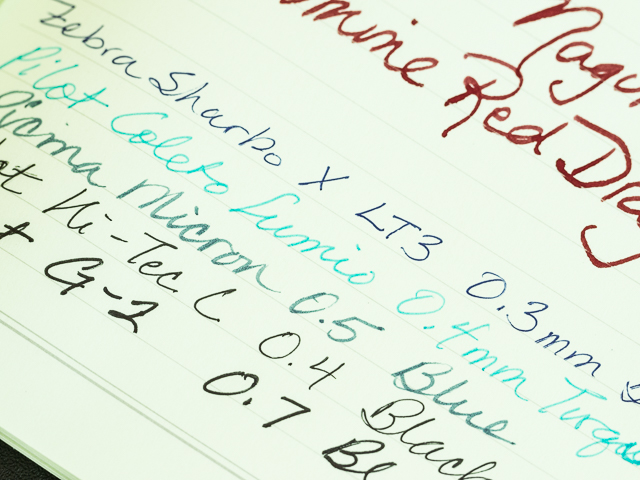 Nagu
mine Red Dra
Zebra Sharbo X LT3 0.3mm
Pilot Coleto Lumio 0.4mm Turquo
Pigma Micron 0.5 Blue
ot Hi-Tec C 0.4 Black
t G-2 0.7 Bl